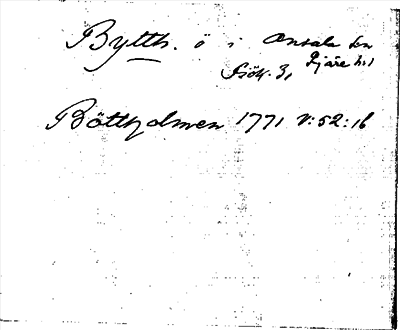 Bytth. ö i Onsala sn
Fjäre hd
Sjök. 3,
Böttholmen 1771 V:52:16